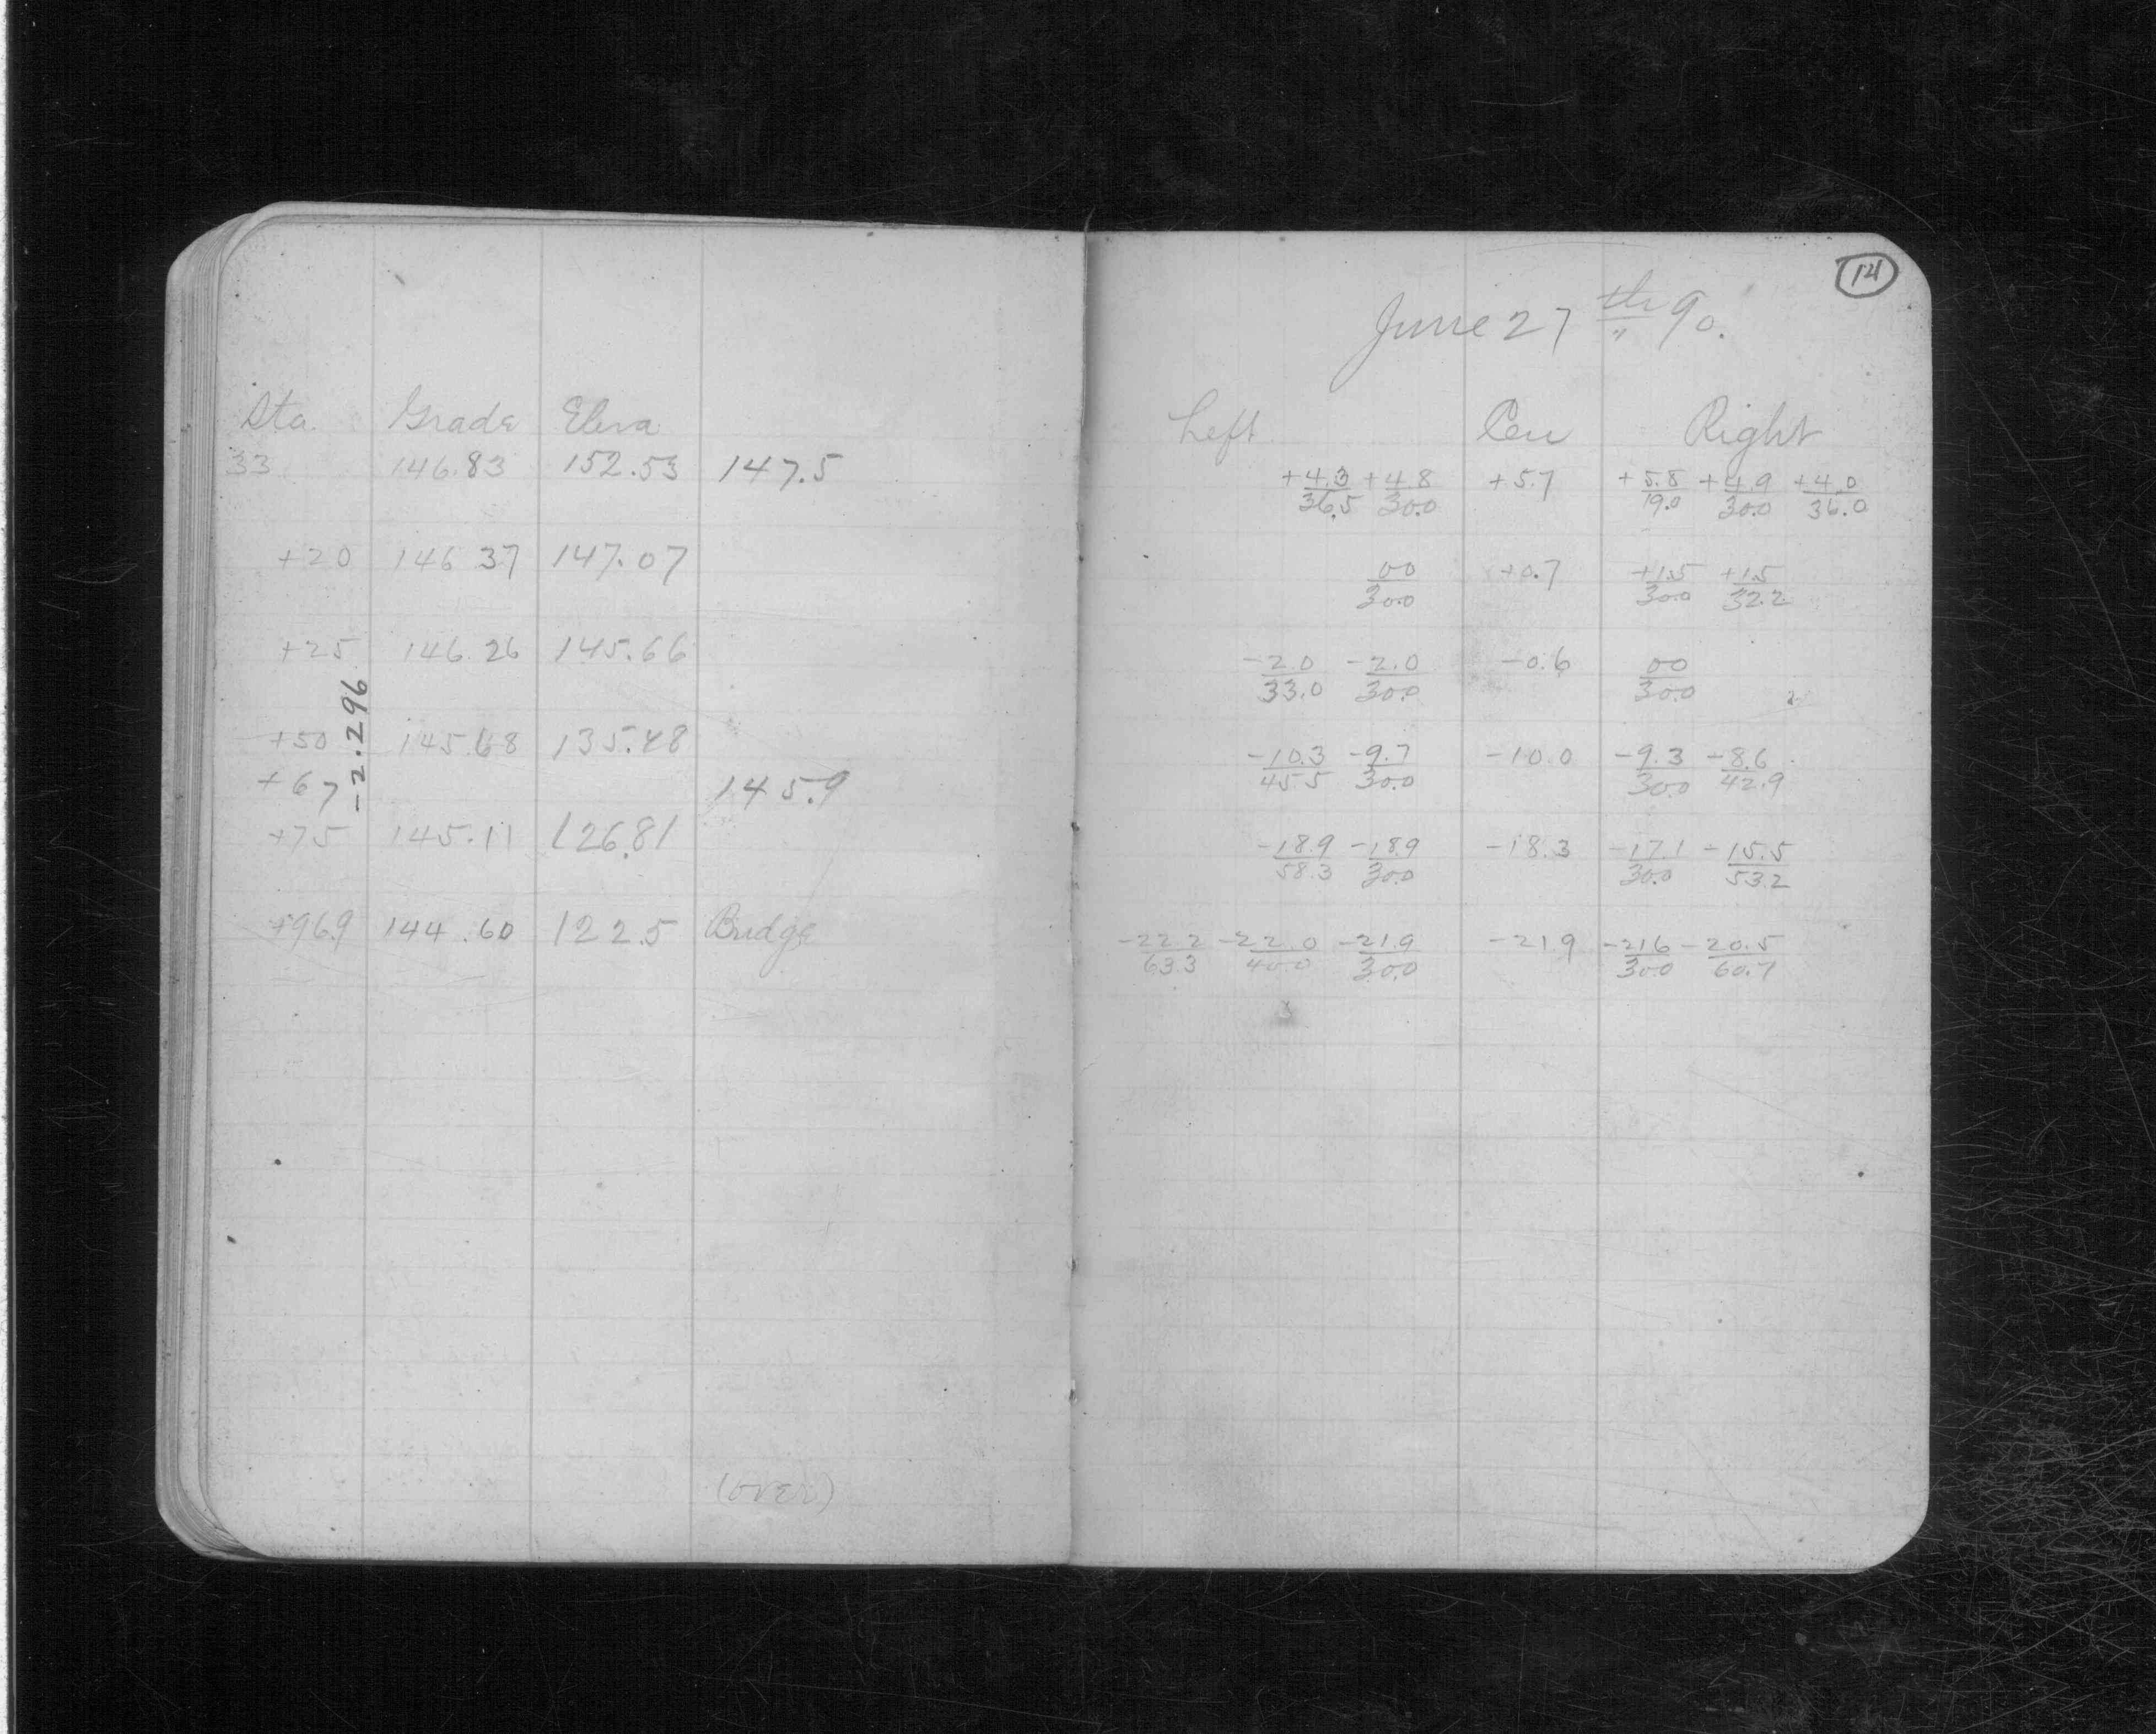 Sta. Grade Eleva
33 146.83 152.53 147.5
+20 146 37 147.07
+25 146.26 145.66
-2.296
+50 145.68 135.48
+67 145.9
+75 145.11 126.81
+969 144.60 122.5 Bridge
(over)
14
June 27 th 90.
Left Cen Right
+4.3 +4.8 +5.7 +5.8 +4.9 +4.0
36.5 30.0 19.0 30.0 36.0
00 +0.7 +1.5 +1.5
30.0 30.0 32.2
-2.0 -2.0 -0.6 00
33.0 30.0 30.0
-10.3 -9.7 -10.0 -9.3 -8.6
45 5 30.0 30.0 42.9
-18.9 -18.9 -18.3 -17.1 -15.5
58.3 30.0 30.0 53.2
-22.2 -22.0 -21.9 -21.9 -21.6 -20.5
63.3 40.0 30.0 30.0 60.7